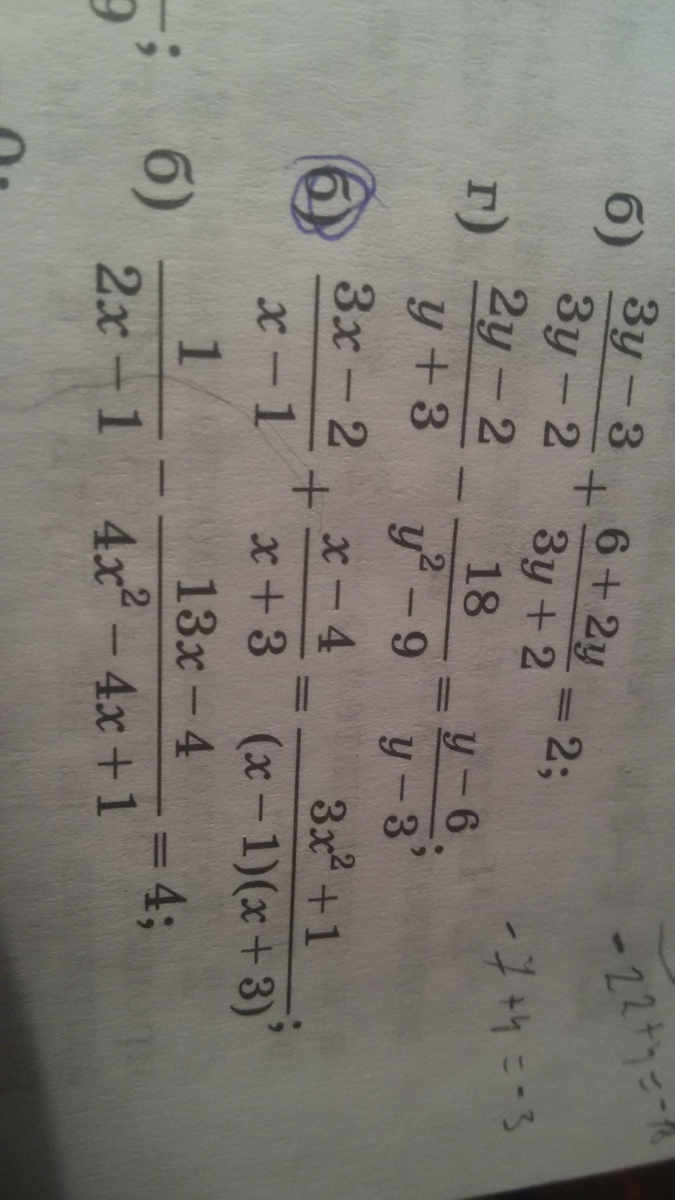 б) (3y − 3)/(3y − 2) + (6 + 2y)/(3y + 2) = 2;
г) (2y − 2)/(y + 3) − 18/(y² − 9) = (y − 6)/(y − 3);
б) (3x − 2)/(x − 1) + (x − 4)/(x + 3) = (3x² + 1)/((x − 1)(x + 3));
б) 1/(2x − 1) − (13x − 4)/(4x² − 4x + 1) = 4;
9 ;